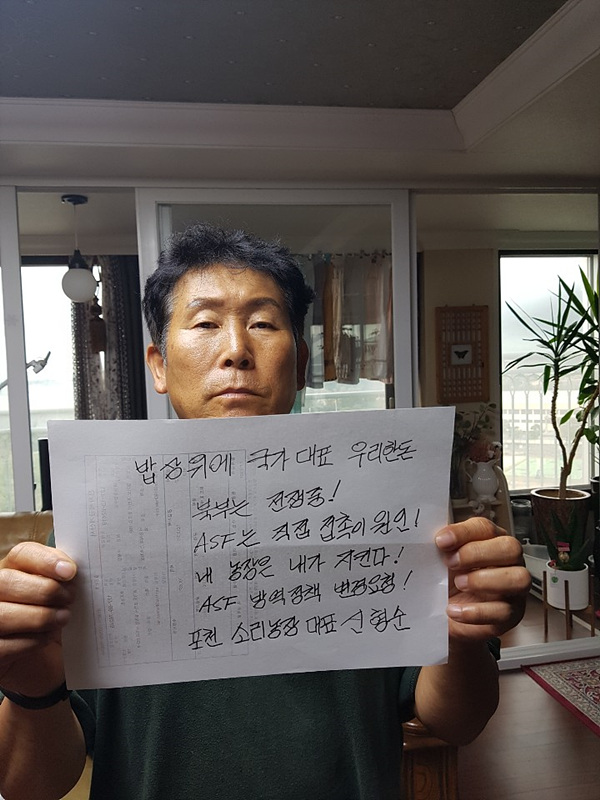 밥상위에 국가대표 우리한돈
북부는 전쟁중!
ASF는 직접 접촉이 원인!
내 농장은 내가 지킨다!
ASF 방역정책 변경요청!
포천 소리농장 대표 신형순